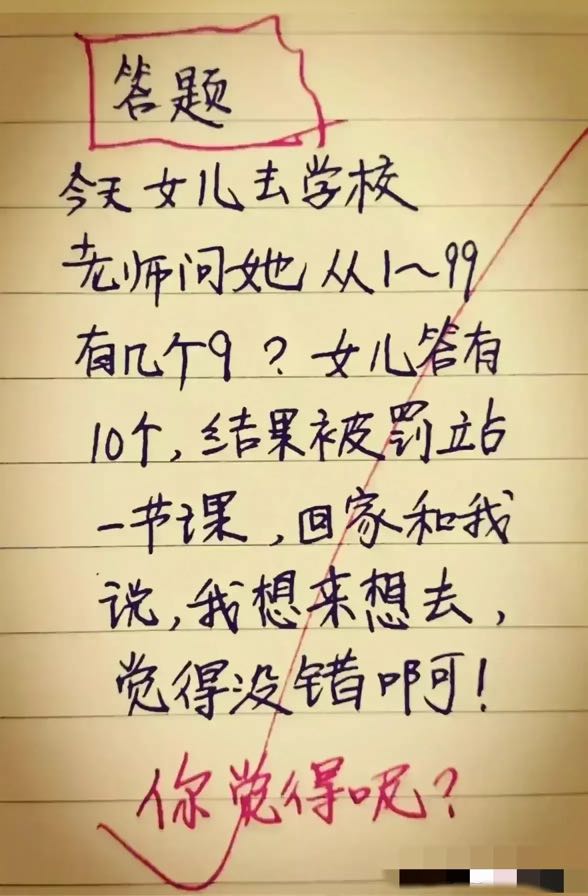 答题
今天女儿去学校
老师问她从1～99
有几个9？女儿答有
10个，结果被罚站
一节课，回家和我
说，我想来想去，
觉得没错啊！
你觉得呢？